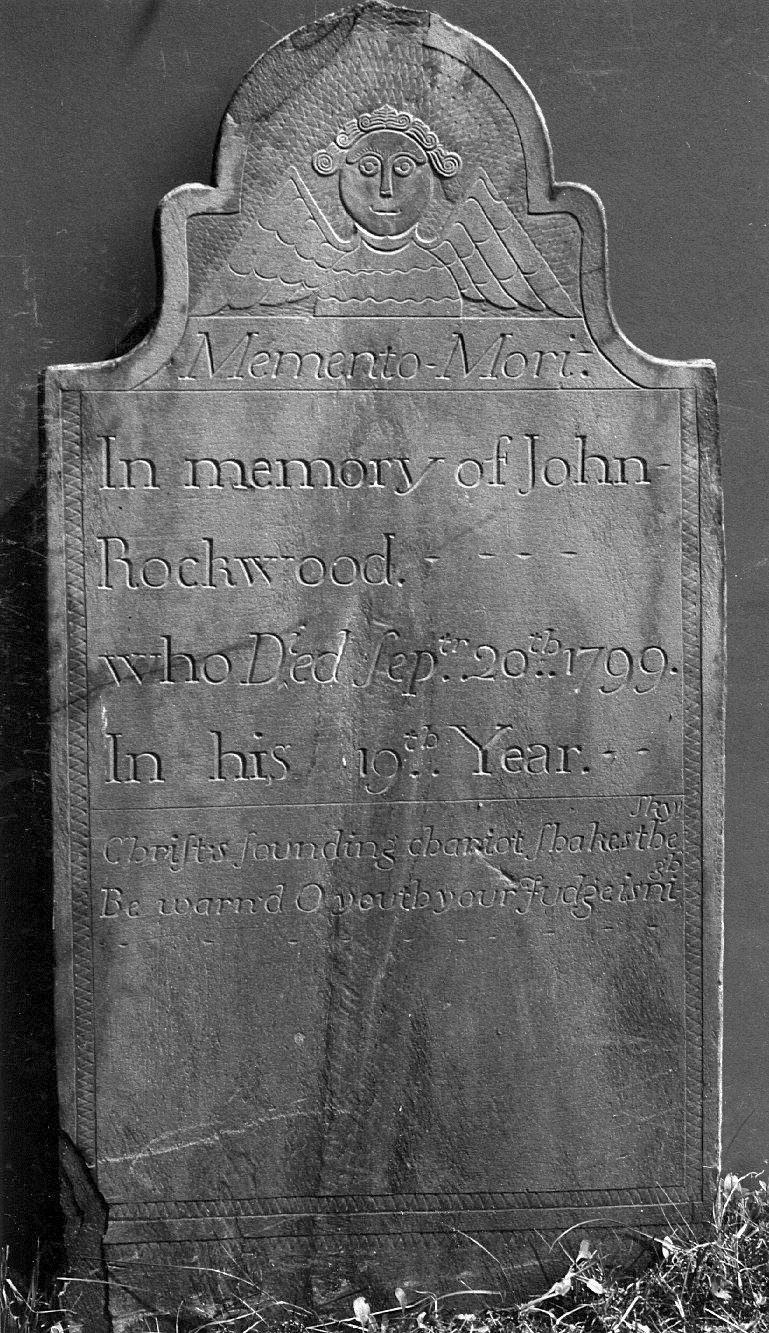 Memento-Mori.
In memory of John-
Rockwood. - - - -
who Died ſepᵗʳ. 20ᵗʰ. 1799.
In his 19ᵗʰ. Year. - -
Christ's ſounding chariot ſhakes the ſky
Be warn'd O youth your Judge is niᵍʰ